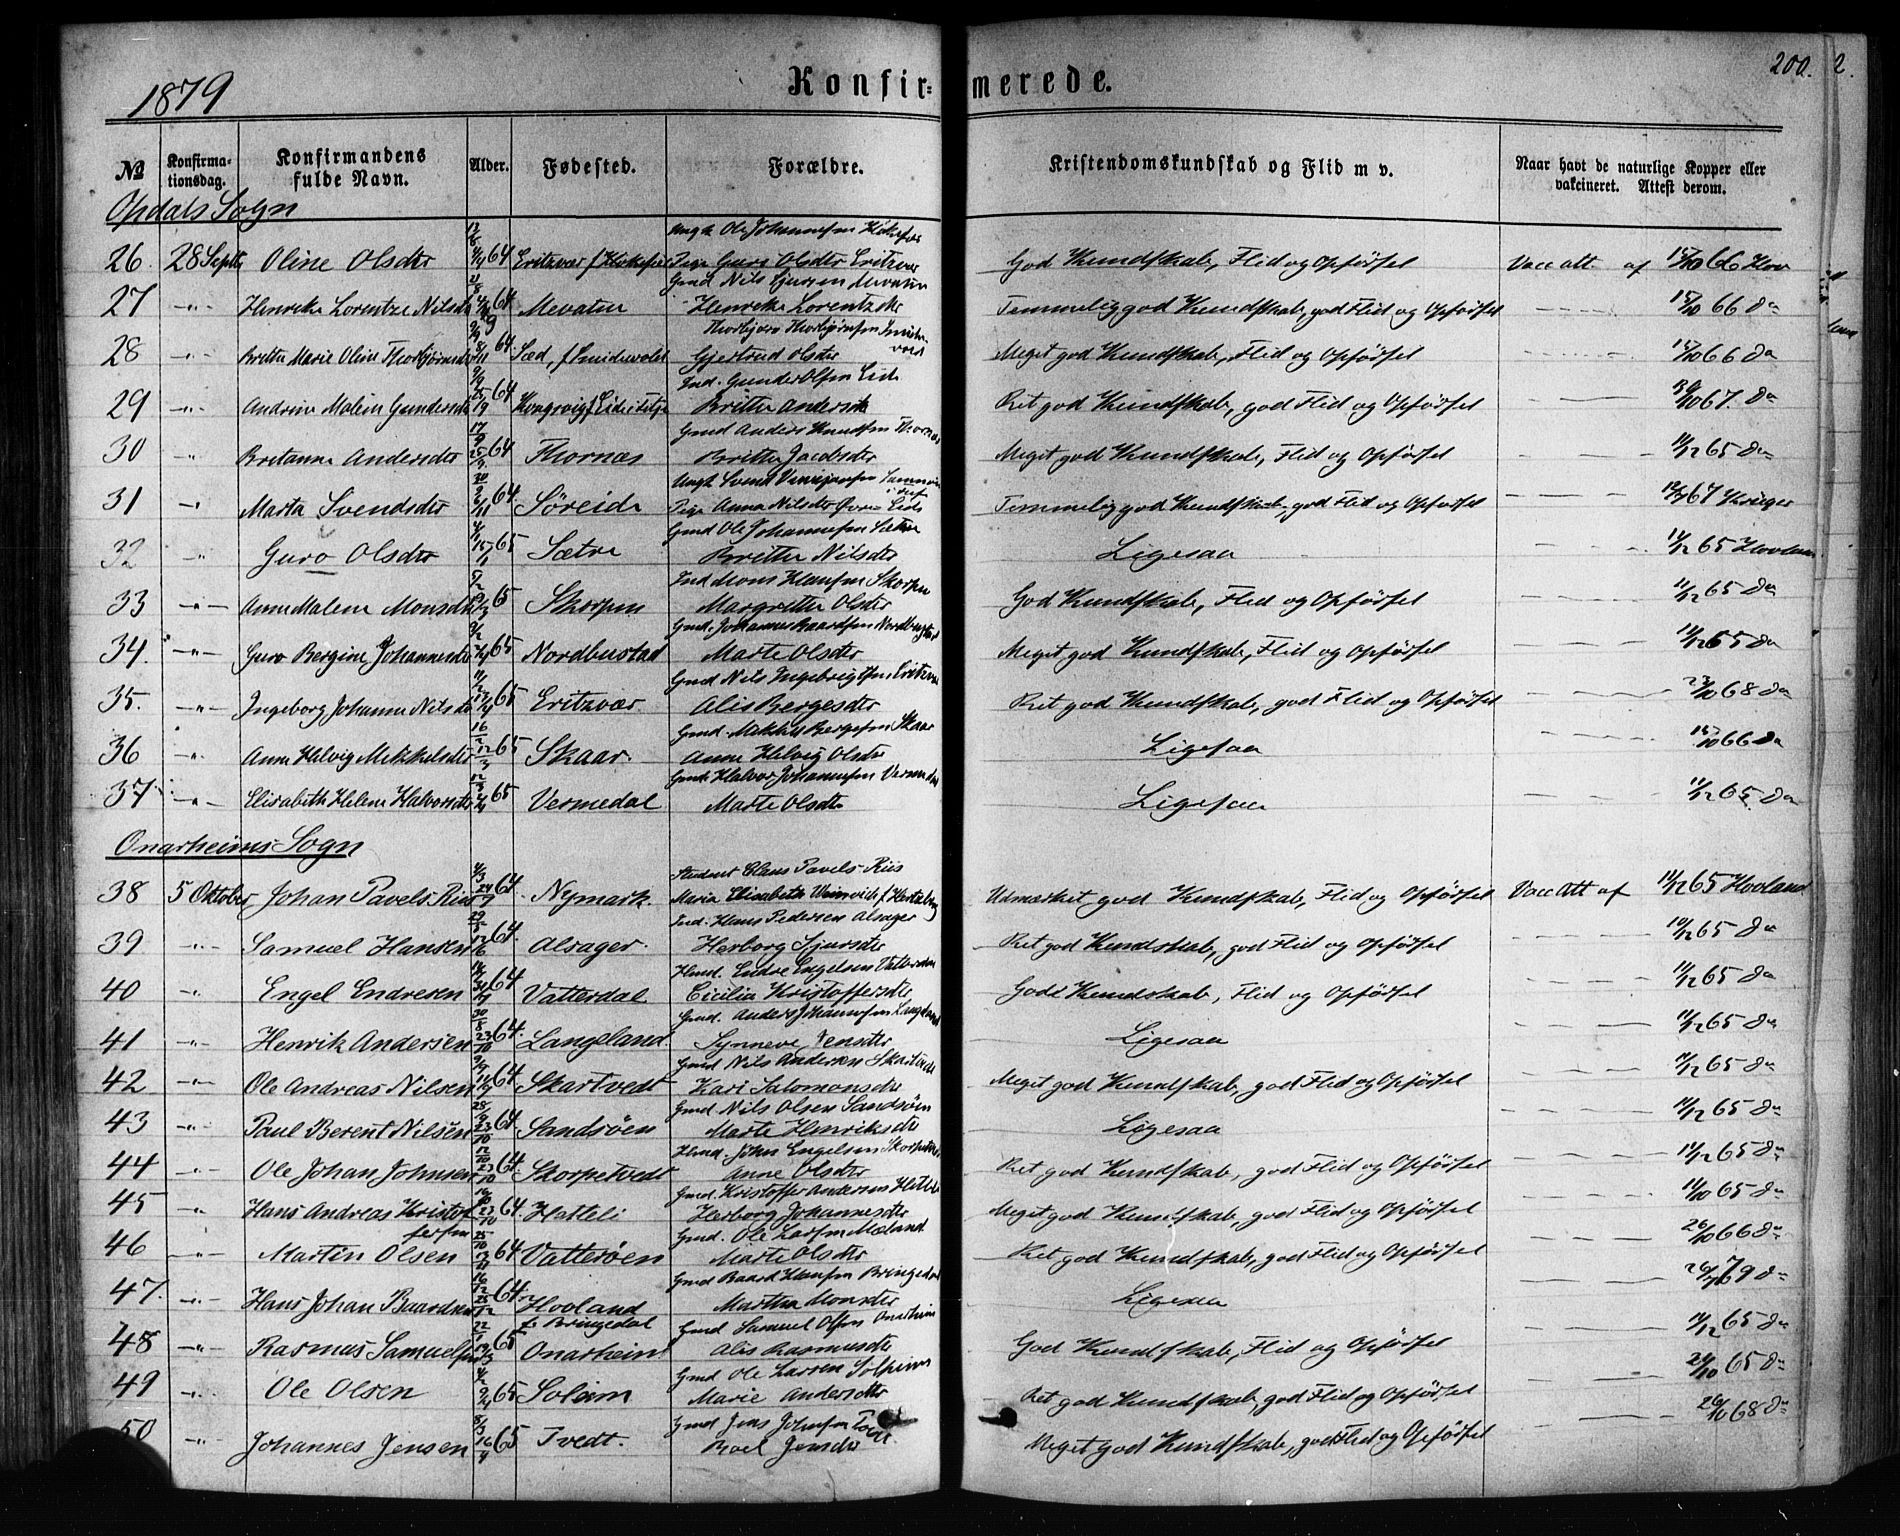 1879
Konfirmerede.
200.
2.
№ Konfirmationsdag. Konfirmandens fulde Navn. Alder. Fødested. Forældre. Kristendomskundskab og Flid m v. Naar havt de naturlige Kopper eller vakcineret. Attest derom.
Opdals Sogn
Ungk Ole Johannesen
26. 28 Septb Oline Olsdtr 64 Eritzvær Pige Guro Olsdter Eritzvær God Kundskab, Flid og Opførsel Vacc att af 15/10 66 Hov
Gmd Nils
27 -"- Henrike Lorentze Nilsdtr 64 Mevatne Henrike Lorentzdtr Temmelig god Kundskab, god Flid og Opførsel 15/10 66 Do
Thorbjørn Thorbjørnsen
28 -"- Britta Marie Oline Thorbjørnsdtr 64. Sæd, f Smidevold Gjertrud Olsdter Meget god Kundskab, Flid og Opførsel 15/10 66 Do
Ind. Gunder Olsen Eide
29 -"- Andrine Malene Gundersdtr 64 Britta Andersdtr Ret god Kundskab, god Flid og Opførsel 67. Do
Gmd Anders Knudsen Thornæs
30 " Bretanne Andersdtr 64 Thornæs Britta Jacobsdtr Meget god Kundskab, Flid og Opførsel 11/12 65 Do
Ungk Svend
31 -"- Marta Svendsdtr 64. Søreide Pige Anna Nilsdtr Øvre Eide Temmelig god Kundskab, god Flid og Opførsel 67 Krüger
Gmd Ole Johannesen Sætre
32 -"- Guro Olsdtr 65 Sætre Britta Nilsdtr Ligesaa 11/12 65 Hovland
Ind Mons Hansen Skorpen
33 -"- Anne Malene Monsdtr 65 Skorpen Margrethe Olsdtr God Kundskab, Flid og Opførsel 11/12 65 Do
Gmd. Johannes Baardsen Nordbustad
34. -"- Guro Bergine Johannesdtr 65 Nordbustad Marte Olsdtr Meget god Kundskab, Flid og Opførsel 11/12 65 Do
Gmd Nils Ingebrigtsen Eritzvær
35. -"- Ingeborg Johanne Nilsdtr 65 Eritzvær Alis Bergesdtr Ret god Kundskab, god Flid og Opførsel 23/10 68 Do
Gmd. Mikkel Bergesen Skaar
36 -"- Anne Halvig Mikkelsdtr 65 Skaar. Anne Helvig Olsdtr Ligesaa 15/10 66 Do
Gmd. Halvor Johannesen Vermedal
37. -"- Elisabeth Helene Halvorsdtr 65 Vermedal Marte Olsdtr Ligesaa 11/12 65 Do
Onarheims Sogn
Student Claus Pavels Riis
38 5 Oktober Johan Pavels Riis 64. Nymark. Maria Elisabeth f Hertzberg Udmærket god Kundskab, Flid og Opførsel Vacc Att af 11/12 65 Hovland
Ind. Hans Pedersen Alsager
39 -"- Samuel Hansen 64. Alsager. Herborg Sjursdtr Ret god Kundskab, god Flid og Opførsel 11/12 65 Do
Hmd. Endre Engelsen Vatterdal
40 " Engel Endresen 64 Vatterdal Cicilia Kristoffersdtr God Kundskab, Flid og Opførsel 11/12 65 Do
Gmd. Anders Johannesen Langeland
41 -"- Henrik Andersen 64. Langeland. Synneve Jensdtr Ligesaa 11/12 65 Do
Gmd Nils Andersen Skartvedt
42 -"- Ole Andreas Nilsen 64 Skartvedt Kari Salomonsdtr Meget god Kundskab, god Flid og Opførsel 11/12 65 Do
Gmd Nils Olsen Sandsøen
43 -"- Paul Berent Nilsen 64 Sandsøen Marte Henriksdtr Ligesaa 11/12 65 Do
Hmd. John Engelsen Skorpetvedt
44 " Ole Johan Johnsen 64. Skorpetvedt Anne Olsdtr Ret god Kundskab, god Flid og Opførsel 11/12 65 Do
Gmd. Kristoffer Andersen Hatleli
45 " Hans Andreas Kristoffersen 64. Hatleli Herborg Johannesdtr Meget god Kundskab, god Flid og Opførsel 65 Do
Gmd. Ole Larsen Mæland
46 -"- Martin Olsen 64 Vatterøen Marte Olsdtr Ret god Kundskab, god Flid og Opførsel 26/10 66 Do
Gmd Baard Hansen Bringedal
47. -"- Hans Johan Baardsen 64. Hovland f. Bringedal Martha Monsdtr Ligesaa
Gmd Samuel Olsen Onarheim
48 -"- Rasmus Samuelsen 65 Onarheim Alis Rasmusdtr God Kundskab, Flid og Opførsel 11/12 65 Do
Gmd Ole Larsen Solheim
49 -"- Ole Olsen 65 Soleim Marie Andersdtr Ret god Kundskab, god Flid og Opførsel 65 Do
Gmd Jens Johnsen Tvedt
50 -"- Johannes Jensen 65 Tvedt. Roel Jensdtr Meget god Kundskab, god Flid og Opførsel 26/10 68 Do